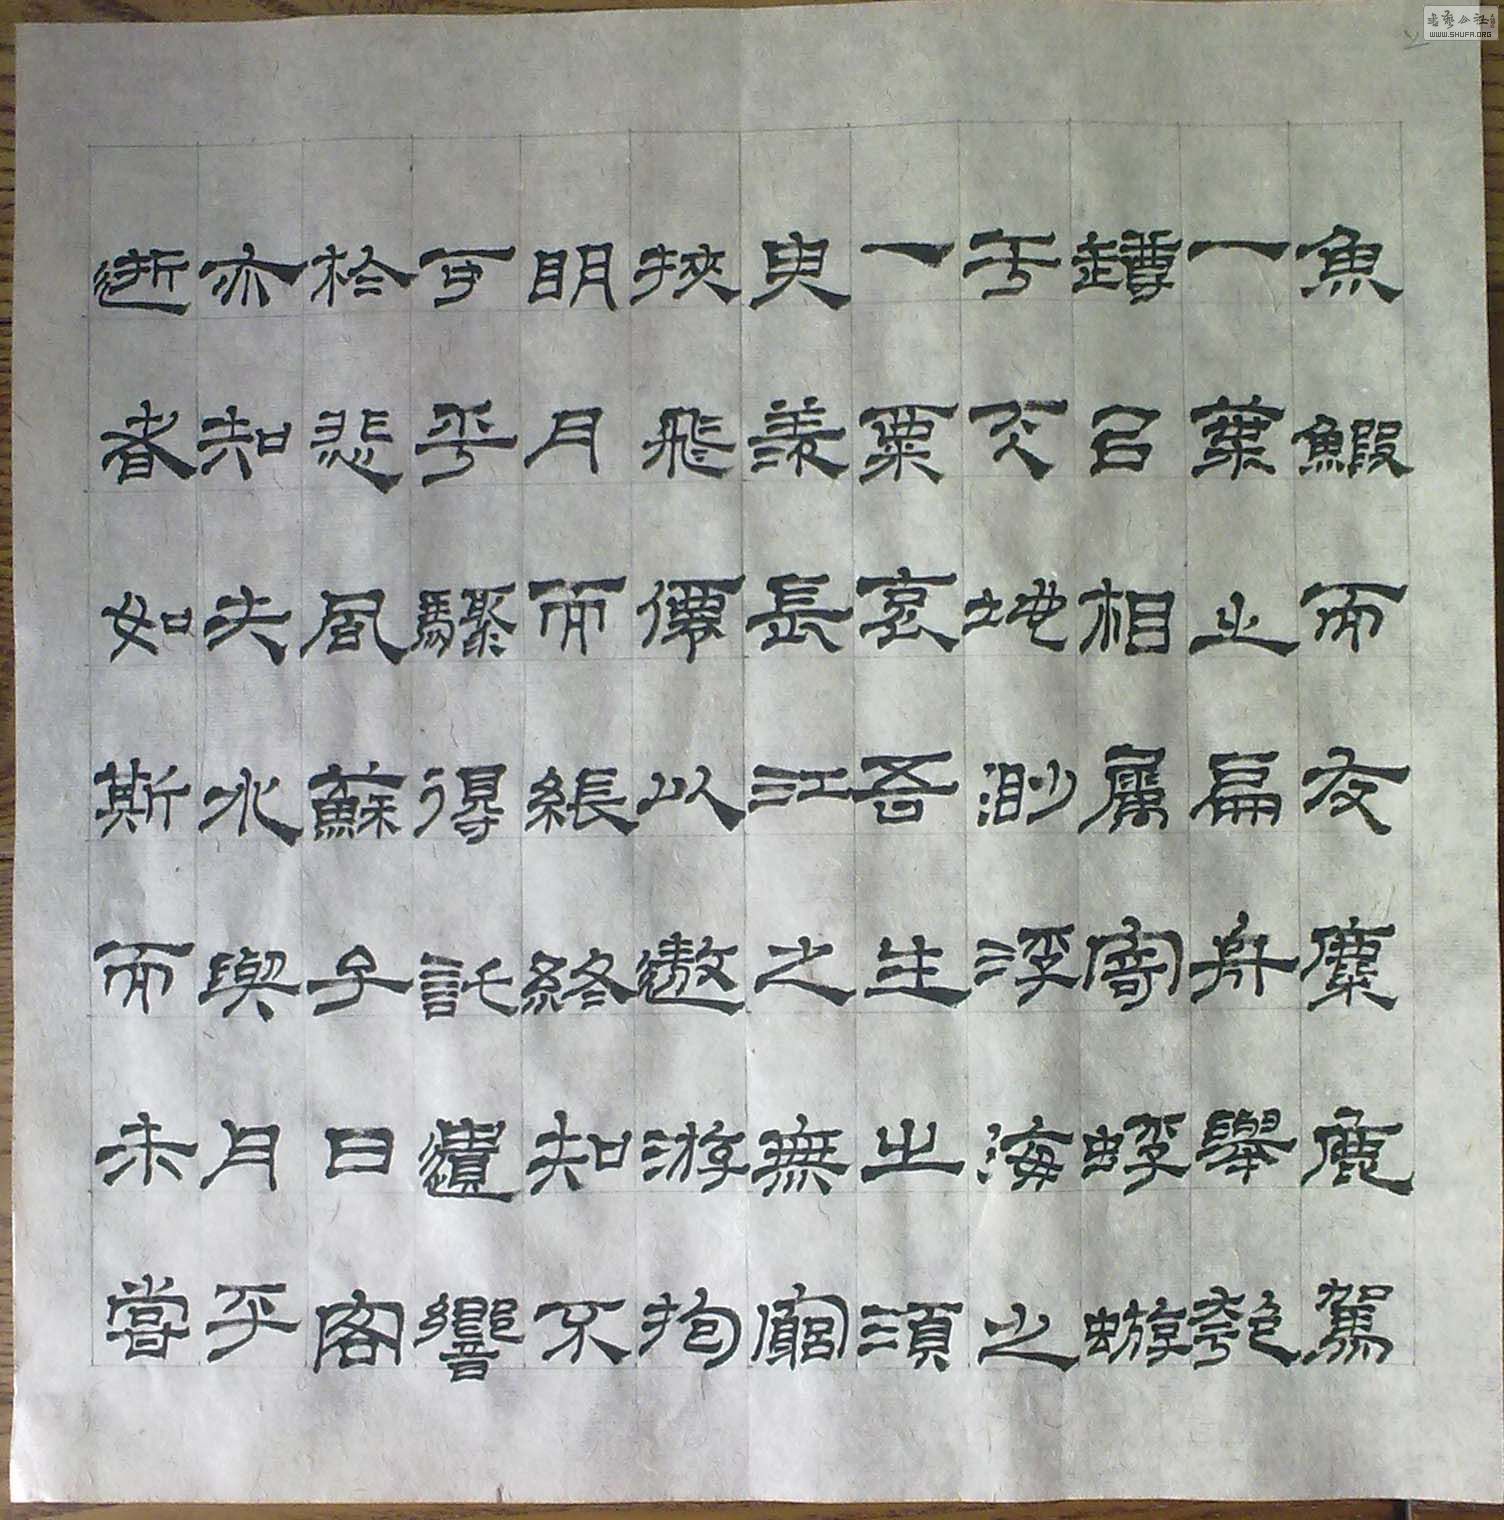 魚鰕而友麋鹿駕
一葉之扁舟舉匏
罇㠯相屬寄蜉蝣
于天地渺浮海之
一粟哀吾生之須
臾羨長江之無窮
挾飛僊以遨游抱
明月而長終知不
可乎驟得託遺響
於悲風蘇子曰客
亦知夫水與月乎
逝者如斯而未嘗
书艺公社
WWW.SHUFA.ORG